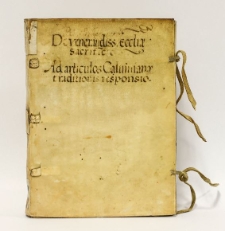 De venerandiss. eccliæ
sacris
Ad articulos Caluinianæ
traditionis responsio.